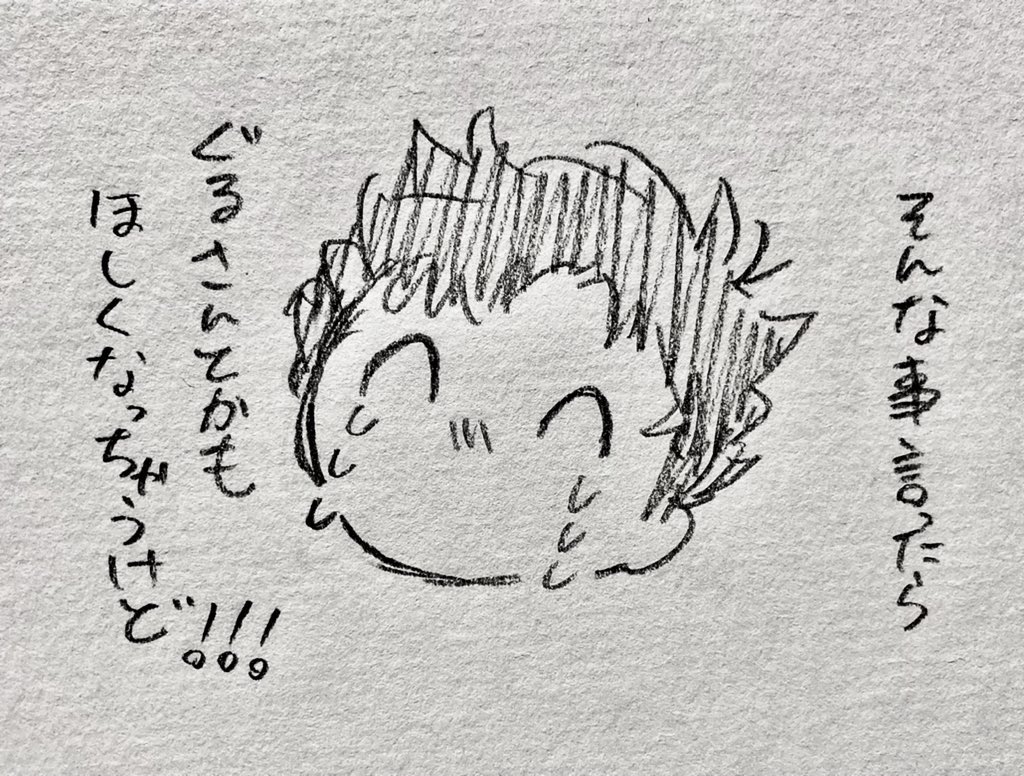 そんな事言ったら
ぐるさんてがも
ほしくなっちゃうけど!!!